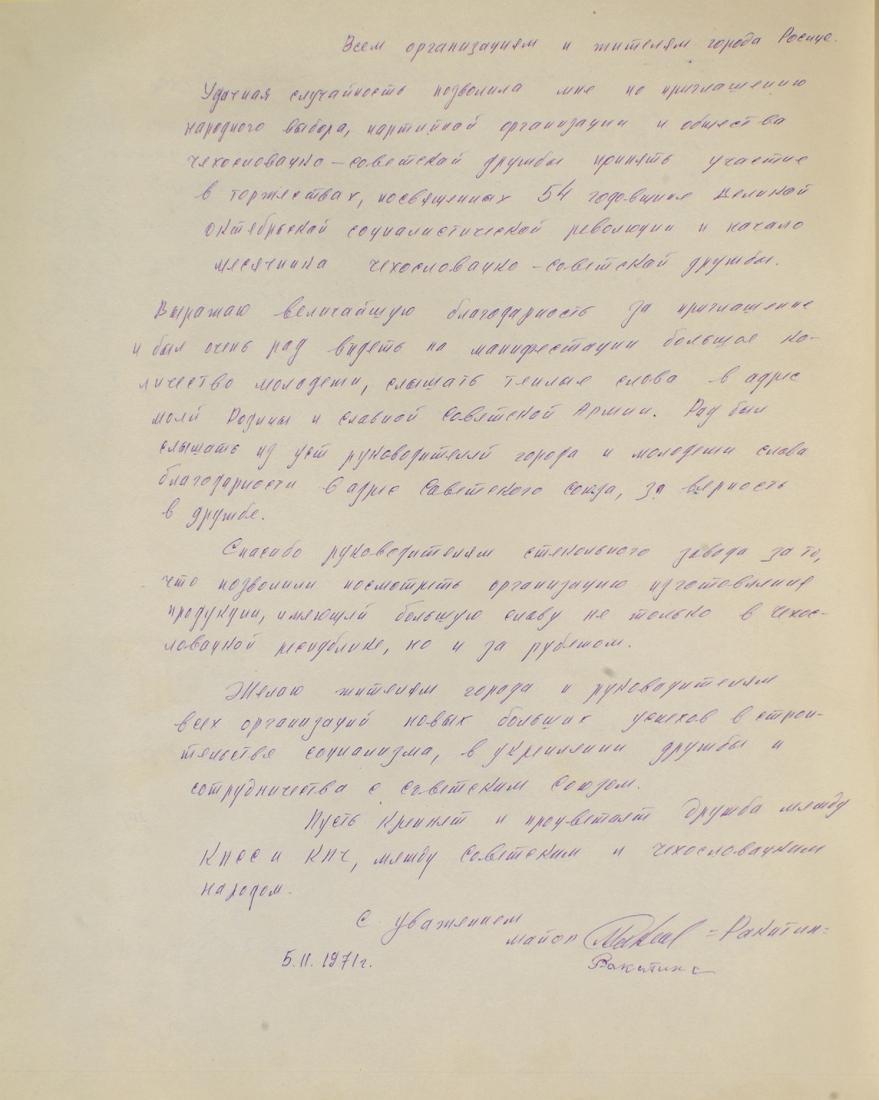 Всем организациям и жителям города Росице.
Удачная случайность позволила мне по приглашению
народного выбора, партийной организации и общества
чехословацко-советской дружбы принять участие
в торжествах, посвященных 54 годовщине Великой
октябрьской социалистической революции и начало
месячника чехословацко-советской дружбы.
Выражаю величайшую благодарность за приглашение
и был очень рад видеть на манифестации большое ко-
личество молодежи, слышать теплые слова в адрес
моей Родины и славной Советской Армии. Рад был
слышать из уст руководителей города и молодежи слова
благодарности в адрес Советского Союза, за верность
в дружбе.
Спасибо руководителям стекольного завода за то,
что позволили посмотреть организацию изготовления
продукции, имеющей большую славу не только в Чехос-
ловацкой республике, но и за рубежом.
Желаю жителям города и руководителям
всех организаций новых больших успехов в строи-
тельстве социализма, в укреплении дружбы и
сотрудничества с Советским Союзом.
Пусть крепнет и процветает дружба между
КПСС и КПЧ, между Советским и чехословацким
народом.
С уважением
майор =Ракитин=
5.11.1971г. Ракитин